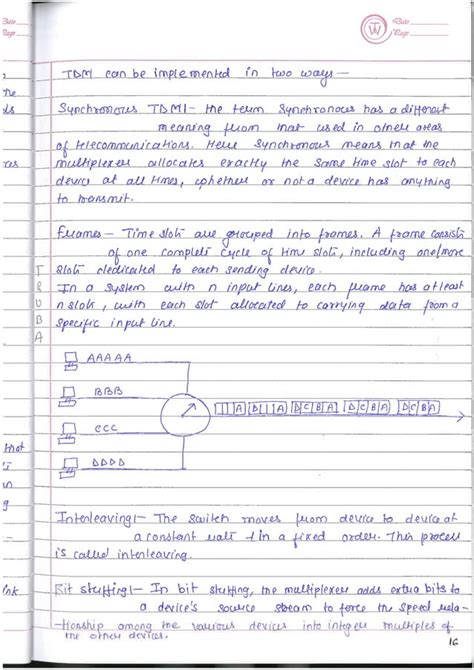 Date
Page
TDM can be implemented in two ways—
Synchronous TDM:- the term Synchronous has a different
meaning from that used in other areas
of telecommunications. Here Synchronous means that the
multiplexer allocates exactly the same time slot to each
device at all times, whether or not a device has anything
to transmit.
Frames - Time slots are grouped into frames. A frame consists
of one complete cycle of time slots, including one/more
slots dedicated to each sending device.
In a system with n input lines, each frame has atleast
n slots, with each slot allocated to carrying data from a
specific input line.
TRUBA
AAAAA
BBB
CCC
DDDD
A D A D C B A D C B A D C B A
Interleaving:- The switch moves from device to device at
a constant rate & in a fixed order. This process
is called interleaving.
Bit stuffing:- In bit stuffing, the multiplexer adds extra bits to
a device's source stream to force the speed rela-
tionship among the various devices into integer multiples of
the other devices.
16